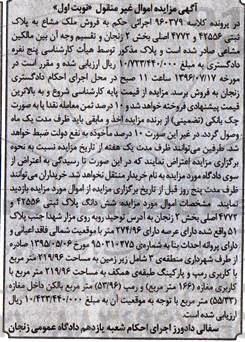 آگهی مزایده اموال غیر منقول "نوبت اول"
در پرونده کلاسه ۹۶۰۳۷۹ اجرائی حکم به فروش ملک مشاع به پلاک
ثبتی ۴۲۵۵۶ و ۴۷۷۲ اصلی بخش ۲ زنجان و تقسیم وجه آن بین مالکین
مشاعی صادر شده است و پلاک مذکور توسط هیأت کارشناسی پنج نفره
دادگستری به مبلغ ۱۰/۷۲۳/۴۴۰/۰۰۰ ریال ارزیابی شده و مقرر است در
مورخه ۱۳۹۶/۰۷/۱۲ ساعت ۱۱ صبح در محل اجرای احکام دادگستری
زنجان به فروش برسد. مزایده از قیمت پایه کارشناسی شروع و به بالاترین
قیمت پیشنهادی فروخته خواهد شد و ۱۰ درصد ثمن نقدا یا به صورت
چک بانکی (تضمینی) از برنده مزایده اخذ و مابقی باید ظرف مدت یک ماه
وصول گردد. در غیر این صورت ۱۰ درصد مأخوذه به نفع دولت ضبط خواهد
شد. طرفین می‌توانند ظرف مدت یک هفته از تاریخ مزایده نسبت به نحوه
برگزاری مزایده اعتراض نمایند که در این صورت تا رسیدگی به اعتراض از
سوی دادگاه مورد مزایده به نام خریدار منتقل نخواهد شد. خریداران می‌توانند
ظرف مدت پنج روز قبل از تاریخ برگزاری مزایده از اموال مورد مزایده بازدید
نمایند. مشخصات اموال مورد مزایده: شش دانگ پلاک ثبتی ۴۲۵۵۶
۴۷۷۲ اصلی بخش ۲ زنجان به آدرس توحید روبه روی مزار شهدا جنب پلاک
۵۱ واقع شده دارای عرصه ۲۷۴/۹۶ متر با موقعیت شمالی فاقد اعیانی و
دارای پروانه احداث بنا به شماره‌ی ۹۵۰۳۱۰۲۷۵ مورخ ۱۳۹۵/۰۵/۰۶ صادره
از طرف شهرداری منطقه‌ی ۳ شامل زیر زمین به مساحت ۲۱۹/۹۶ متر مربع
با کاربری رمپ و پارکینگ طبقه‌ی همکف به مساحت ۲۱۹/۹۶ متر مربع با
کاربری مغازه (۱۶۶ متر مربع) و رمپ (۵۳/۹۶) متر مربع بالکن داخل مغازه
(۵۵/۳۳) متر مربع با توجه به موقعیت آن به مبلغ ۱۰/۴۲۳/۴۴۰/۰۰۰ ریال
ارزیابی شده است.
سفالی دادورز اجرای احکام شعبه یازدهم دادگاه عمومی زنجان